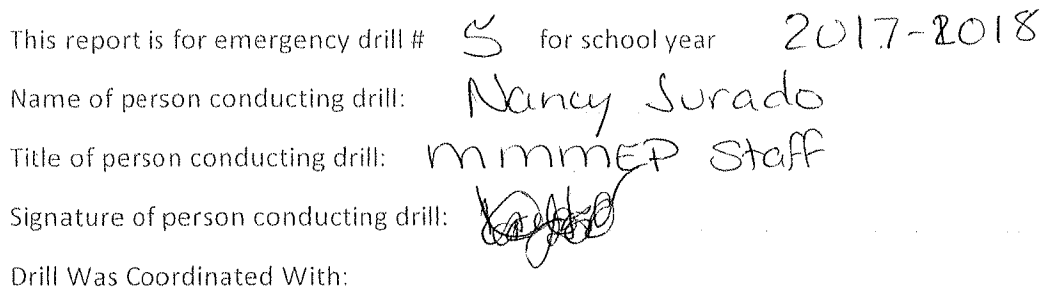 This report is for emergency drill # 5 for school year 2017-2018
Name of person conducting drill: Nancy Jurado
Title of person conducting drill: mmmEP Staff
Signature of person conducting drill:
Drill Was Coordinated With: